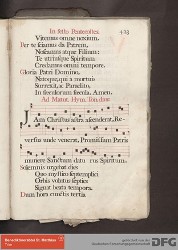 In festo Pentecostes. 423
Vitemus omne noxium.
Per te sciamus da Patrem,
Noscamus atque Filium:
Te utriusque Spiritum
Credamus omni tempore.
Gloria Patri Domino,
Natoque, qui a mortuis
Surrexit, ac Paraclito
In sæculorum sæcula. Amen.
Ad Matut. Hym. Ton.
Jam Christus astra ascenderat, Re-
versus unde venerat, Promissum
munere Sanctum daturus Spiritum.
Solemnis urgebat dies
Quo mystico septemplici
Orbis volutus septies
Signat beata tempora.
Dum hora cunctis tertia
DFG